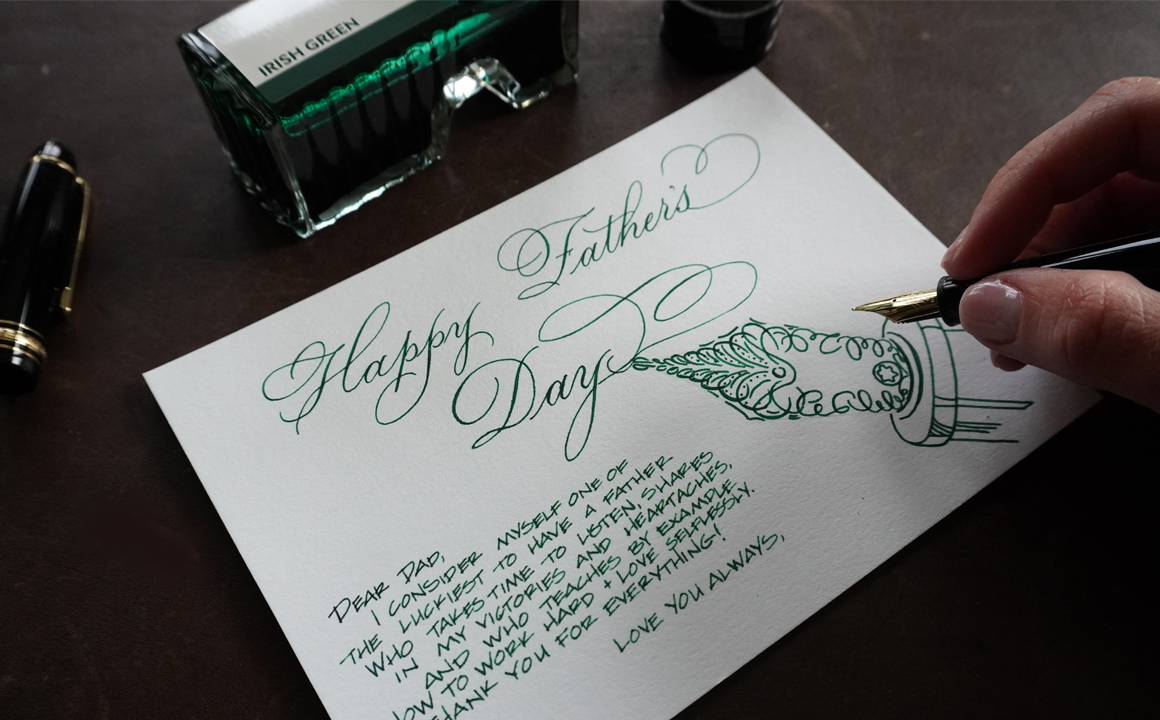 IRISH GREEN
Happy Father's
Day
DEAR DAD,
I CONSIDER MYSELF ONE OF
THE LUCKIEST TO HAVE A FATHER
WHO TAKES TIME TO LISTEN, SHARES
IN MY VICTORIES AND HEARTACHES,
AND WHO TEACHES BY EXAMPLE
HOW TO WORK HARD + LOVE SELFLESSLY.
THANK YOU FOR EVERYTHING!
LOVE YOU ALWAYS,